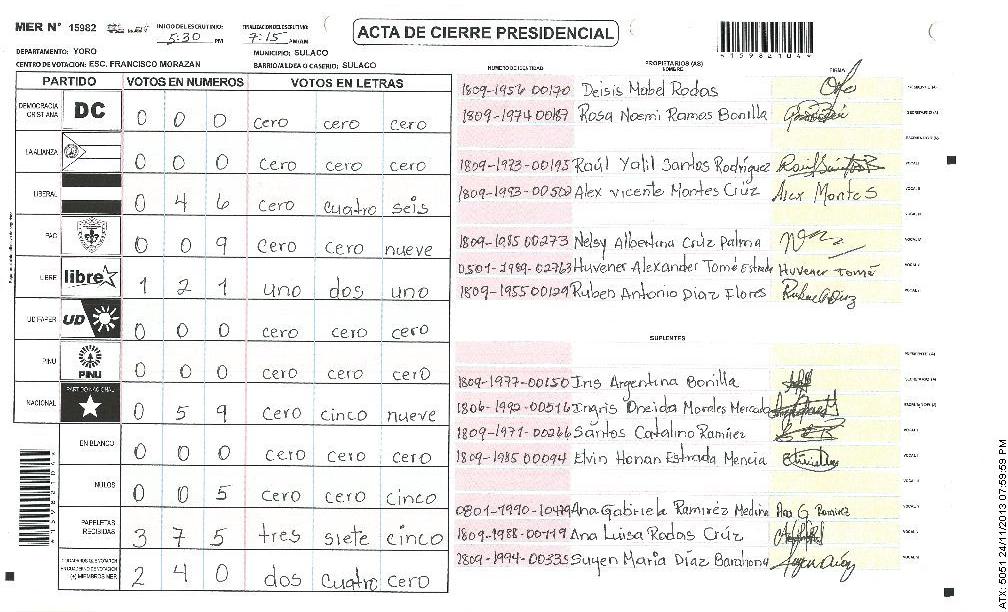 MER N° 15982
INICIO DEL ESCRUTINIO: 5:30 PM
FINALIZACION DEL ESCRUTINIO: 7:15 PM/AM
ACTA DE CIERRE PRESIDENCIAL
4159821044
DEPARTAMENTO: YORO
MUNICIPIO: SULACO
CENTRO DE VOTACION: ESC. FRANCISCO MORAZAN
BARRIO/ALDEA O CASERIO: SULACO
PARTIDO VOTOS EN NUMEROS VOTOS EN LETRAS
DEMOCRACIA CRISTIANA DC 0 0 0 cero cero cero
LA ALIANZA 0 0 0 cero cero cero
LIBERAL 0 4 6 cero cuatro seis
PAC 0 0 9 cero cero nueve
LIBRE libre 1 2 1 uno dos uno
UD FAPER UD 0 0 0 cero cero cero
PINU PINU 0 0 0 cero cero cero
NACIONAL PARTIDO NACIONAL 0 5 9 cero cinco nueve
EN BLANCO 0 0 0 cero cero cero
NULOS 0 0 5 cero cero cinco
PAPELETAS RECIBIDAS 3 7 5 tres siete cinco
(+) MIEMBROS MER 2 4 0 dos cuatro cero
NUMERO DE IDENTIDAD PROPIETARIOS (AS) NOMBRE FIRMA
1809-1956 00170 Deisis Mabel Rodas
1809-1974 00187 Rosa Noemi Ramos Bonilla
1809-1973-00195 Raúl Yalil Santos Rodríguez
1809-1993-00500 Alex Vicente Montes Cruz Alex Montes
1809-1985 00273 Nelsy Albertina Cruz Palma
0501-1989-02763 Huvener Alexander Tomé Estrada Huvener Tomé
1809-1955 00129 Ruben Antonio Diaz Flores
SUPLENTES
1809-1977-00150 Iris Argentina Bonilla
1806-1990-00516 Ingris Oneida Morales Mercado
1809-1971-00266 Santos Catalino Ramirez
1809-1985 00094 Elvin Honan Estrada Mencia
0801-1990-10479 Ana Gabriela Ramirez Medina Ana G Ramirez
1809-1988-00719 Ana Luisa Rodas Cruz
1809-1994-00335 Suyen Maria Díaz Barahona
ATX: 5051 24/11/2013 07:59:59 PM